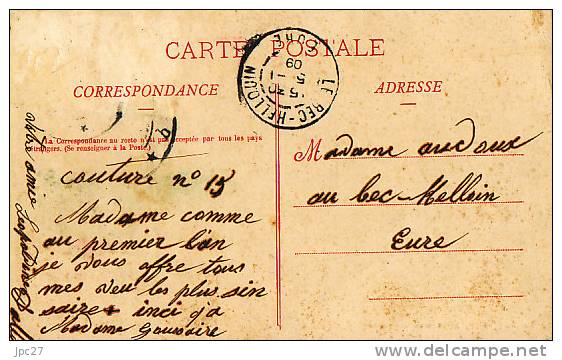 CARTE POSTALE
CORRESPONDANCE
ADRESSE
LE BEC-HELLOUIN
EURE
15 30
5 - 1
09
La Correspondance au recto n'est pas acceptée par tous les pays
étrangers. (Se renseigner à la Poste.)
couture n° 15
Madame comme
au premier l'an
je vous offre tous
mes veu les plus sin
saire inci q'a
Madame Gaussire
votre amie
Madame
au bec Melloin
Eure
jpc27
delcampe.net